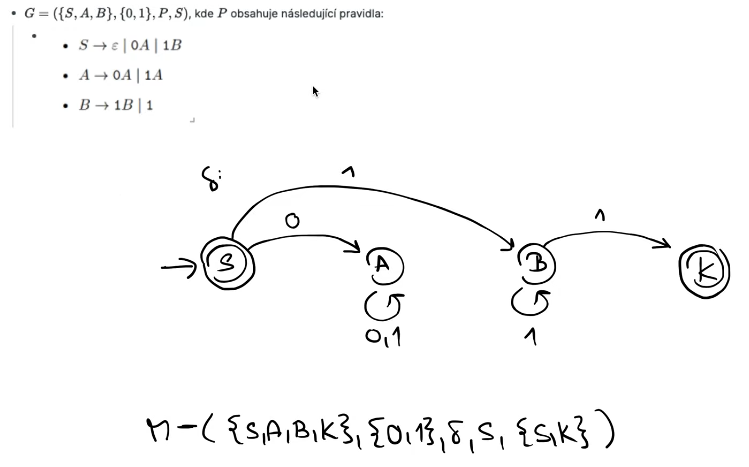 G = ({S, A, B}, {0, 1}, P, S), kde P obsahuje následující pravidla:
S → ε | 0A | 1B
A → 0A | 1A
B → 1B | 1
δ:
1
0
1
S
A
B
K
0,1
1
M = ( {S,A,B,K}, {0,1}, δ, S, {S,K} )